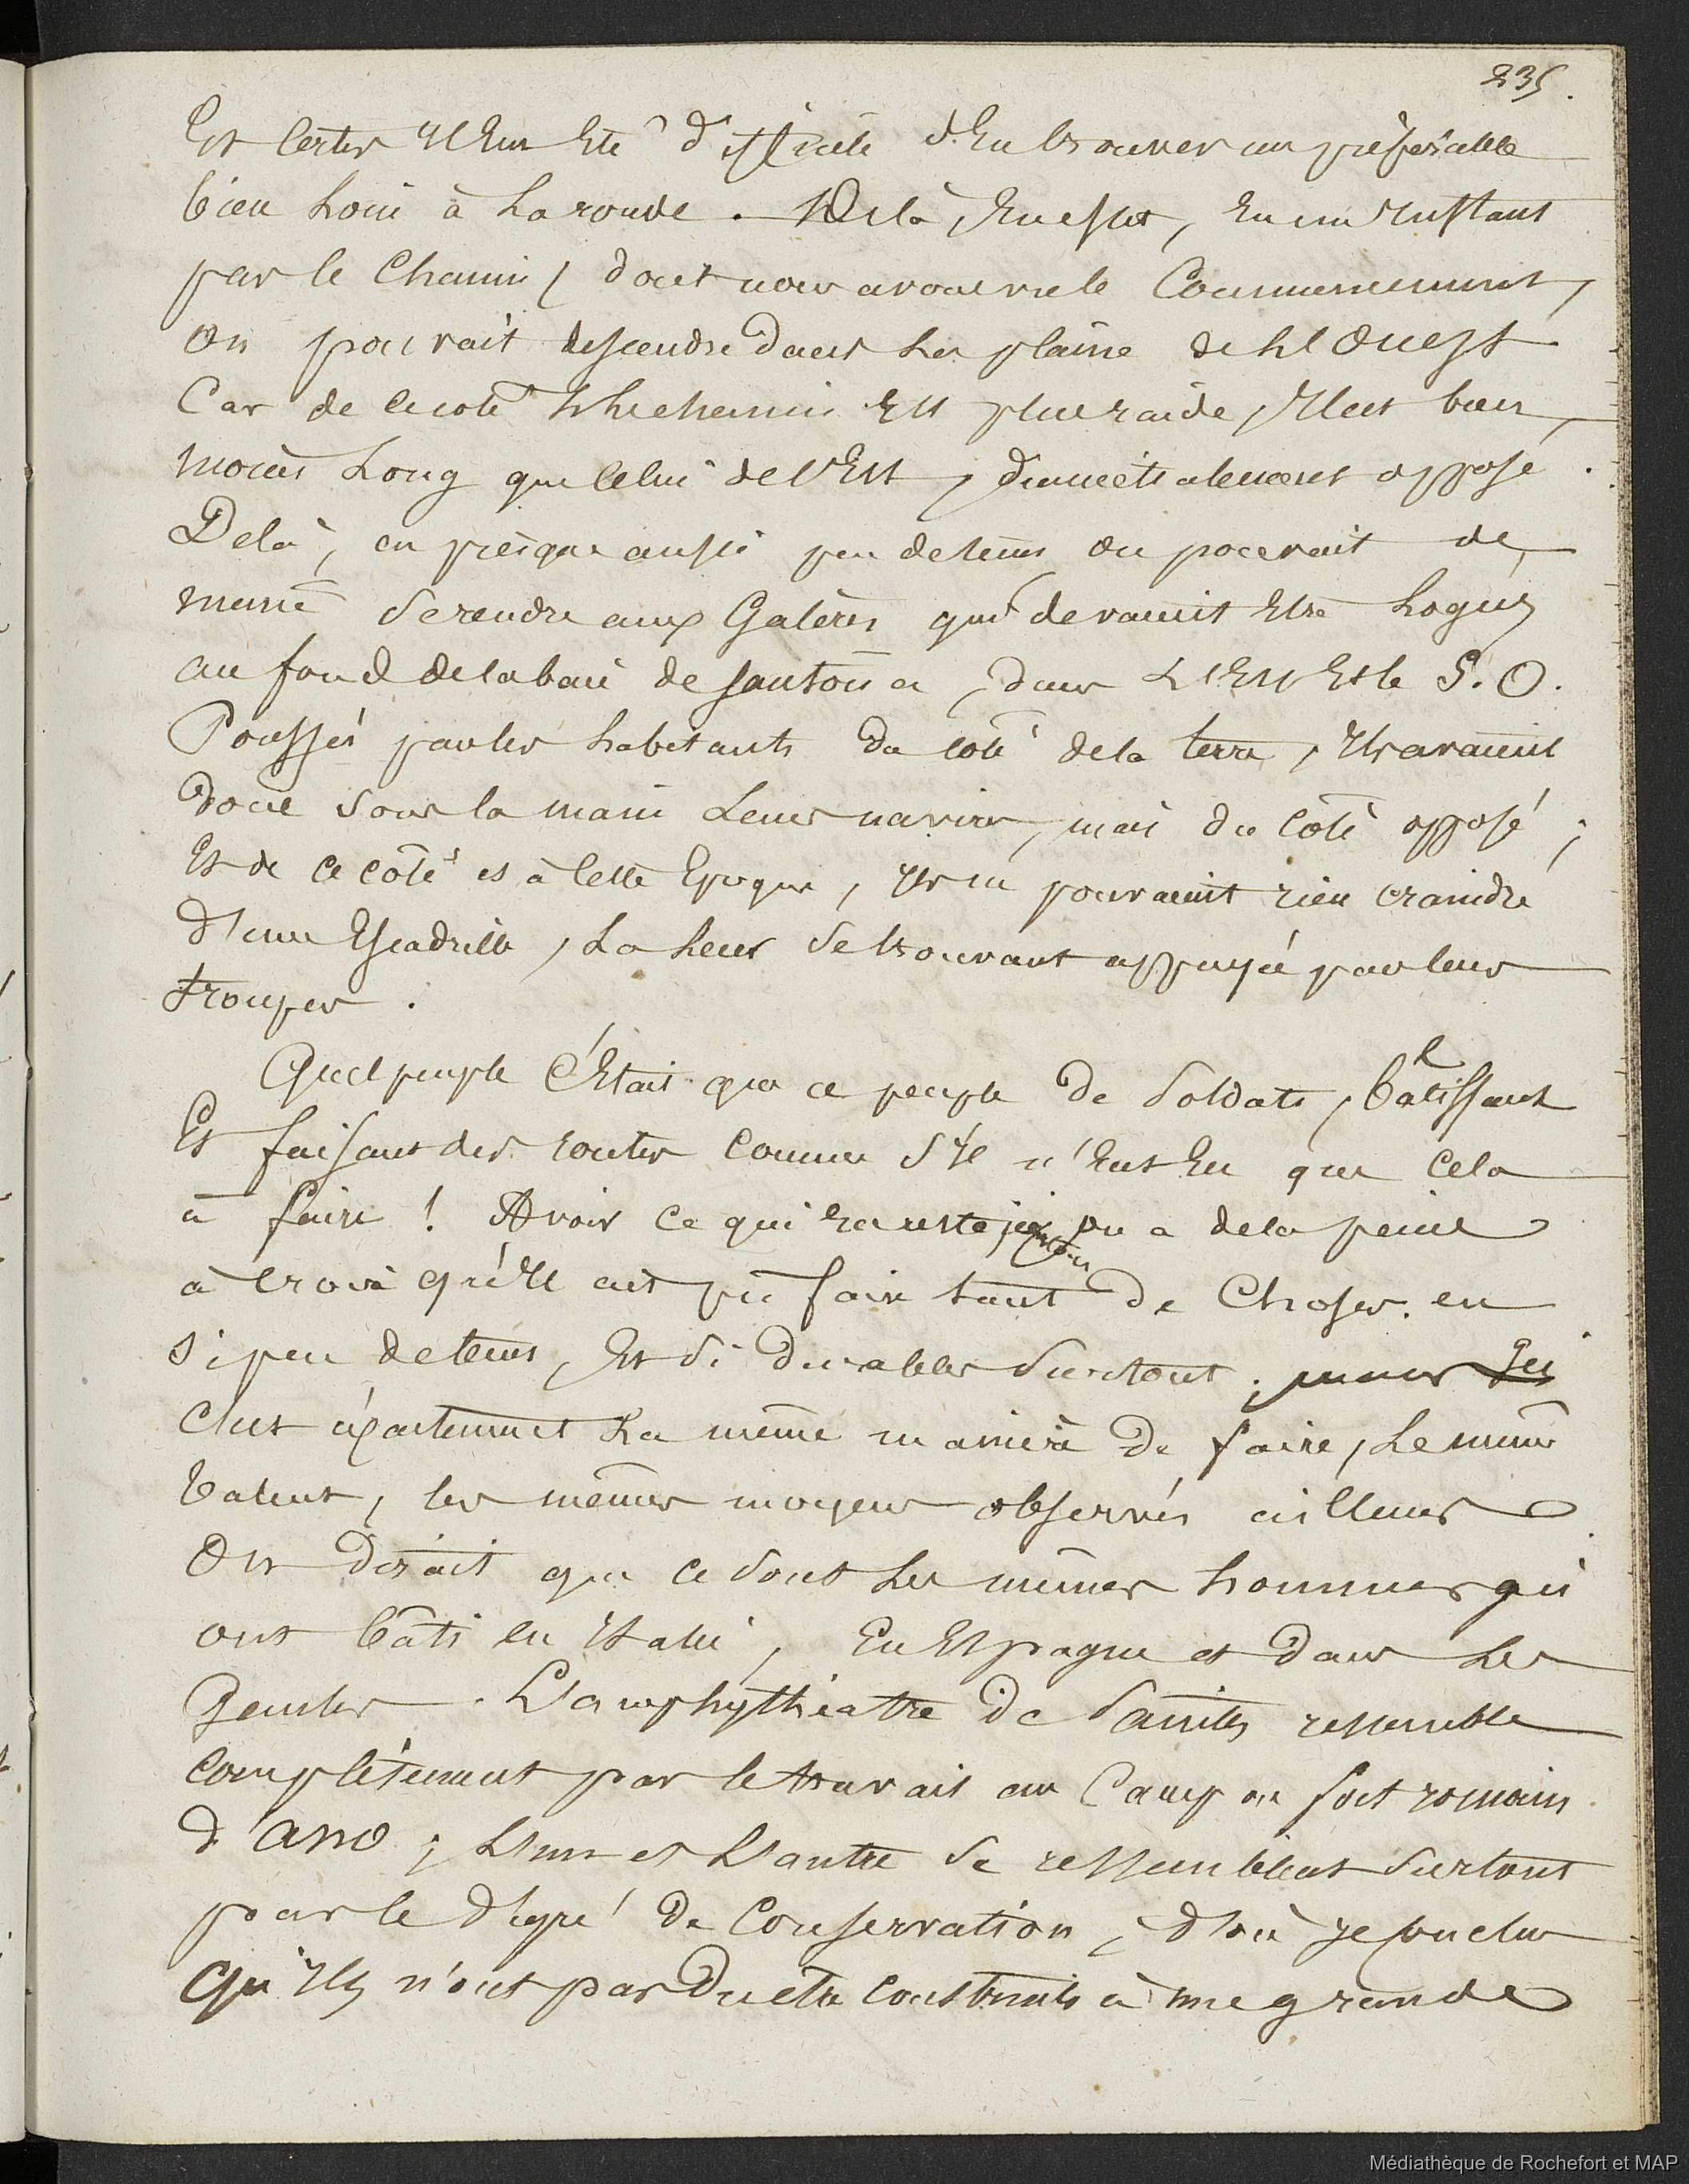 235.
Et certes Il Eut Eté difficile d'En trouver un préférable
bien Loin à La ronde. De là, En effet, En un Instant
par le Chemin / dont nous avons vu le Commencement,
On pouvait descendre dans La plaine de L'Ouest
Car de ce coté le chemin Est plus raide, Il est bien
moins Long que Celui de l'Est, diamétralement opposé.
De là, en presque aussi peu de tems on pouvait de
meme Se rendre aux Galères qui devaient Etre Logées
au fond de la baie de Santona, dans L'Est Et le S.O.
Poussés par les habitants du coté de la terre, Ils avaient
donc Sous la main Leurs navires, mais du côté opposé ;
Et de Ce côté et à Cette Epoque, Ils ne pouvaient rien craindre
d'une Escadrille, La Leur Se trouvant appuyée par leurs
troupes.
Quel peuple C'Etait que ce peuple de Soldats, bâtissant
Et faisant des routes Comme S'Il n'Eut Eu que Cela
à faire ! A voir Ce qui En reste on a de la peine
à Croire qu'Il ait pu faire tant de Choses en
Si peu de tems, Et Si durables Surtout ;
C'est Exactement La même manière de faire, Le même
talent, les mêmes moyens observés ailleurs
On dirait que Ce Sont Les mêmes hommes qui
ont bâti en Italie, En Espagne et dans Les
Gaules. L'amphythéatre de Saintes ressemble
Complétement par le travail au Camp ou fort romain
d'Ano ; L'un et L'autre Se ressemblent Surtout
par le dégré de Conservation, d'où Je conclus
qu'Ils n'ont pas du etre Construits à une grande
Médiathèque de Rochefort et MAP